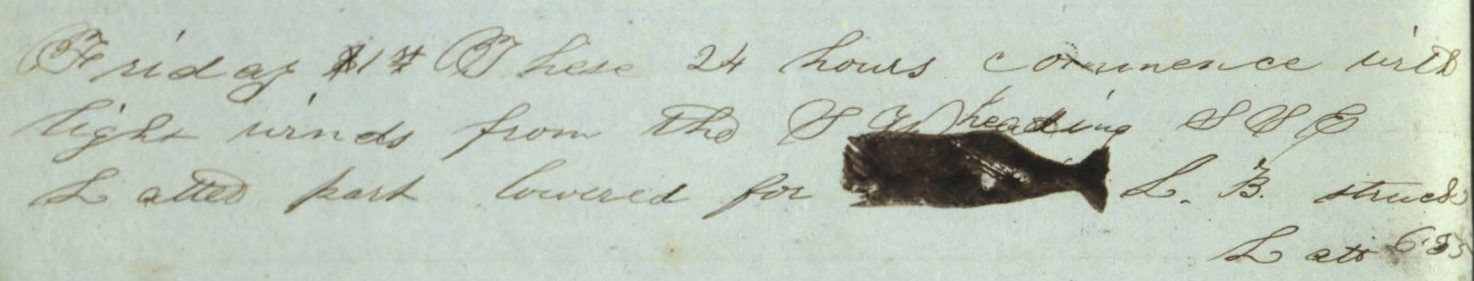 Friday 1st These 24 hours commence with
light winds from the S W heading S S E
Latter part lowered for L. B. struck
Latt